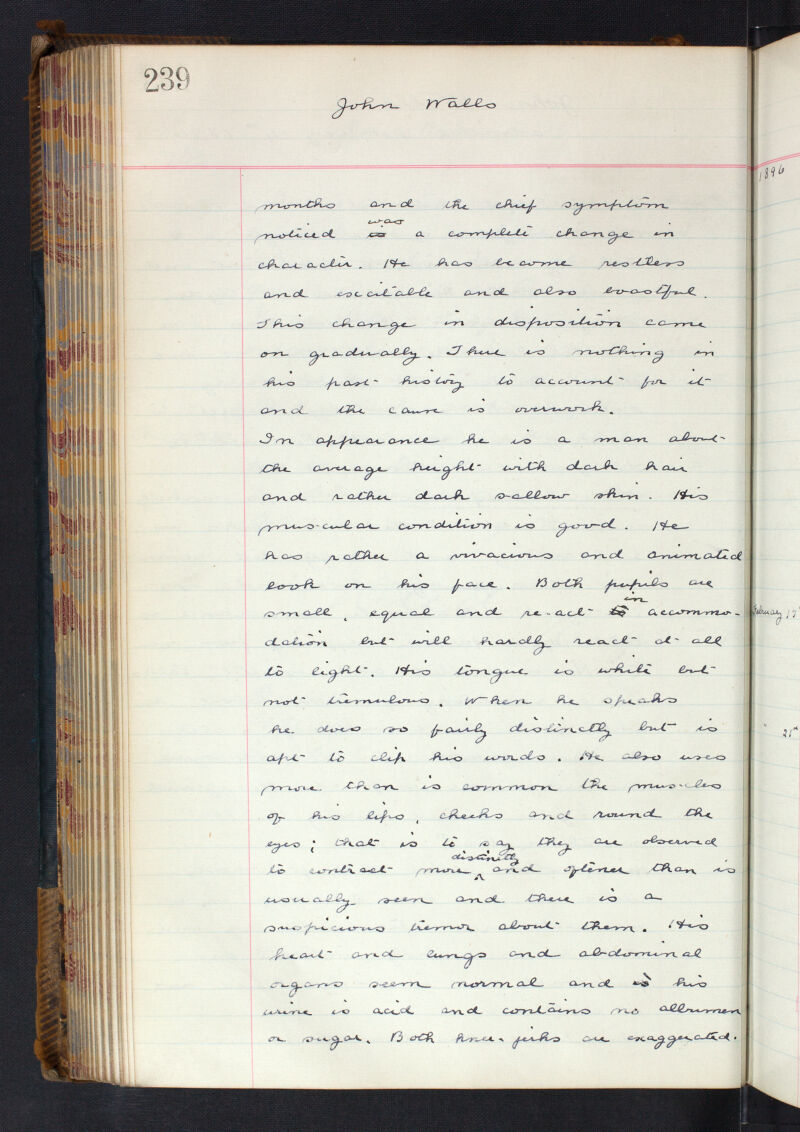 239
John Walls
months and the chief symptom
was
noticed is a complete change in
character. He has become restless
and excitable and also boastful.
This change in disposition came
on gradually. There is nothing in
his past history to account for it
and the cause is overwork.
In appearance he is a man about
the average height with dark hair
and rather dark sallow skin. His
muscular condition is good. He
has rather a vivacious and animated
look on his face. Both pupils are
in
small, equal and re-act to accommo-
dation but will hardly react at all
to light. His tongue is white but
not tremulous. When he speaks
he does so fairly distinctly but is
apt to clip his words. He also uses
more than is common the muscles
of his lips, cheeks and round the
eyes; that is to say they are observed
distinctly
to contract more and oftener than is
usually seen and there is a
suspicious tremor about them. His
heart and lungs and abdominal
organs seem normal and is his
urine is acid and contains no albumen
or sugar. Both knee-jerks are exaggerated.
1896
February 17
" 25th